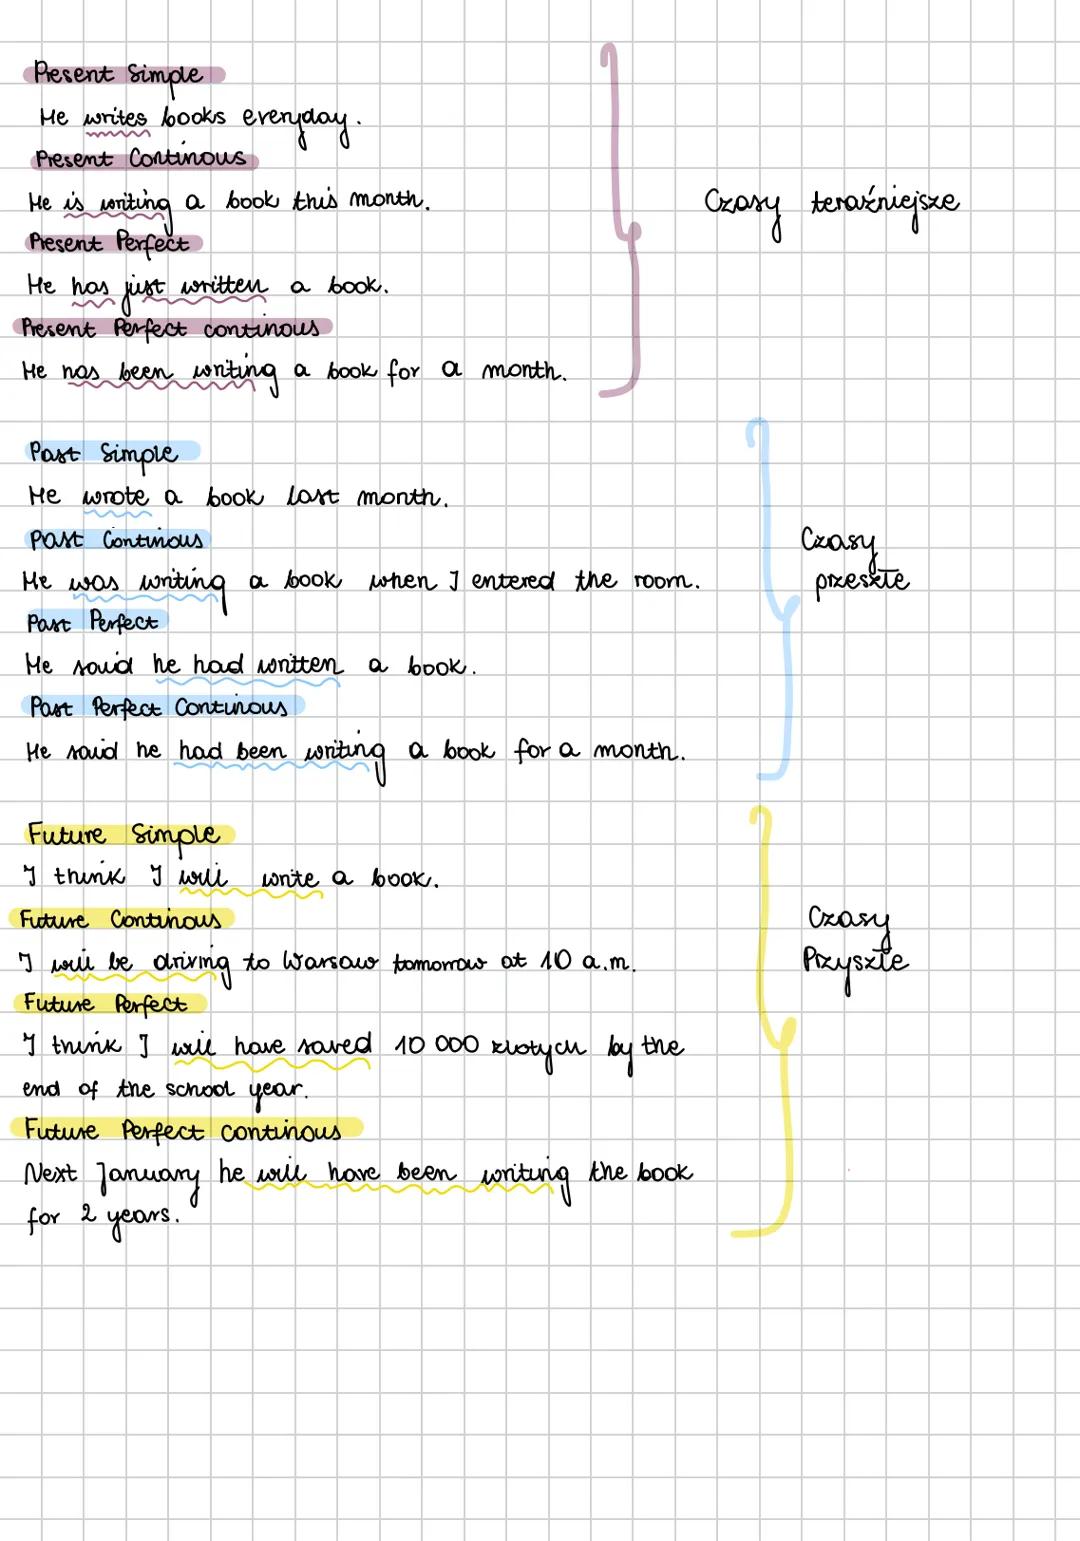 Present Simple
He writes books everyday.
Present Continous
He is writing a book this month.
Czasy teraźniejsze
Present Perfect
He has just written a book.
Present Perfect continous
He has been writing a book for a month.
Past Simple
He wrote a book last month.
Past Continous
He was writing a book when I entered the room.
Czasy
przeszłe
Past Perfect
He said he had written a book.
Past Perfect Continous
He said he had been writing a book for a month.
Future Simple
I think I will write a book.
Future Continous
I will be driving to Warsaw tomorrow at 10 a.m.
Czasy
Przyszłe
Future Perfect
I think I will have saved 10 000 złotych by the
end of the school year.
Future Perfect continous
Next January he will have been writing the book
for 2 years.